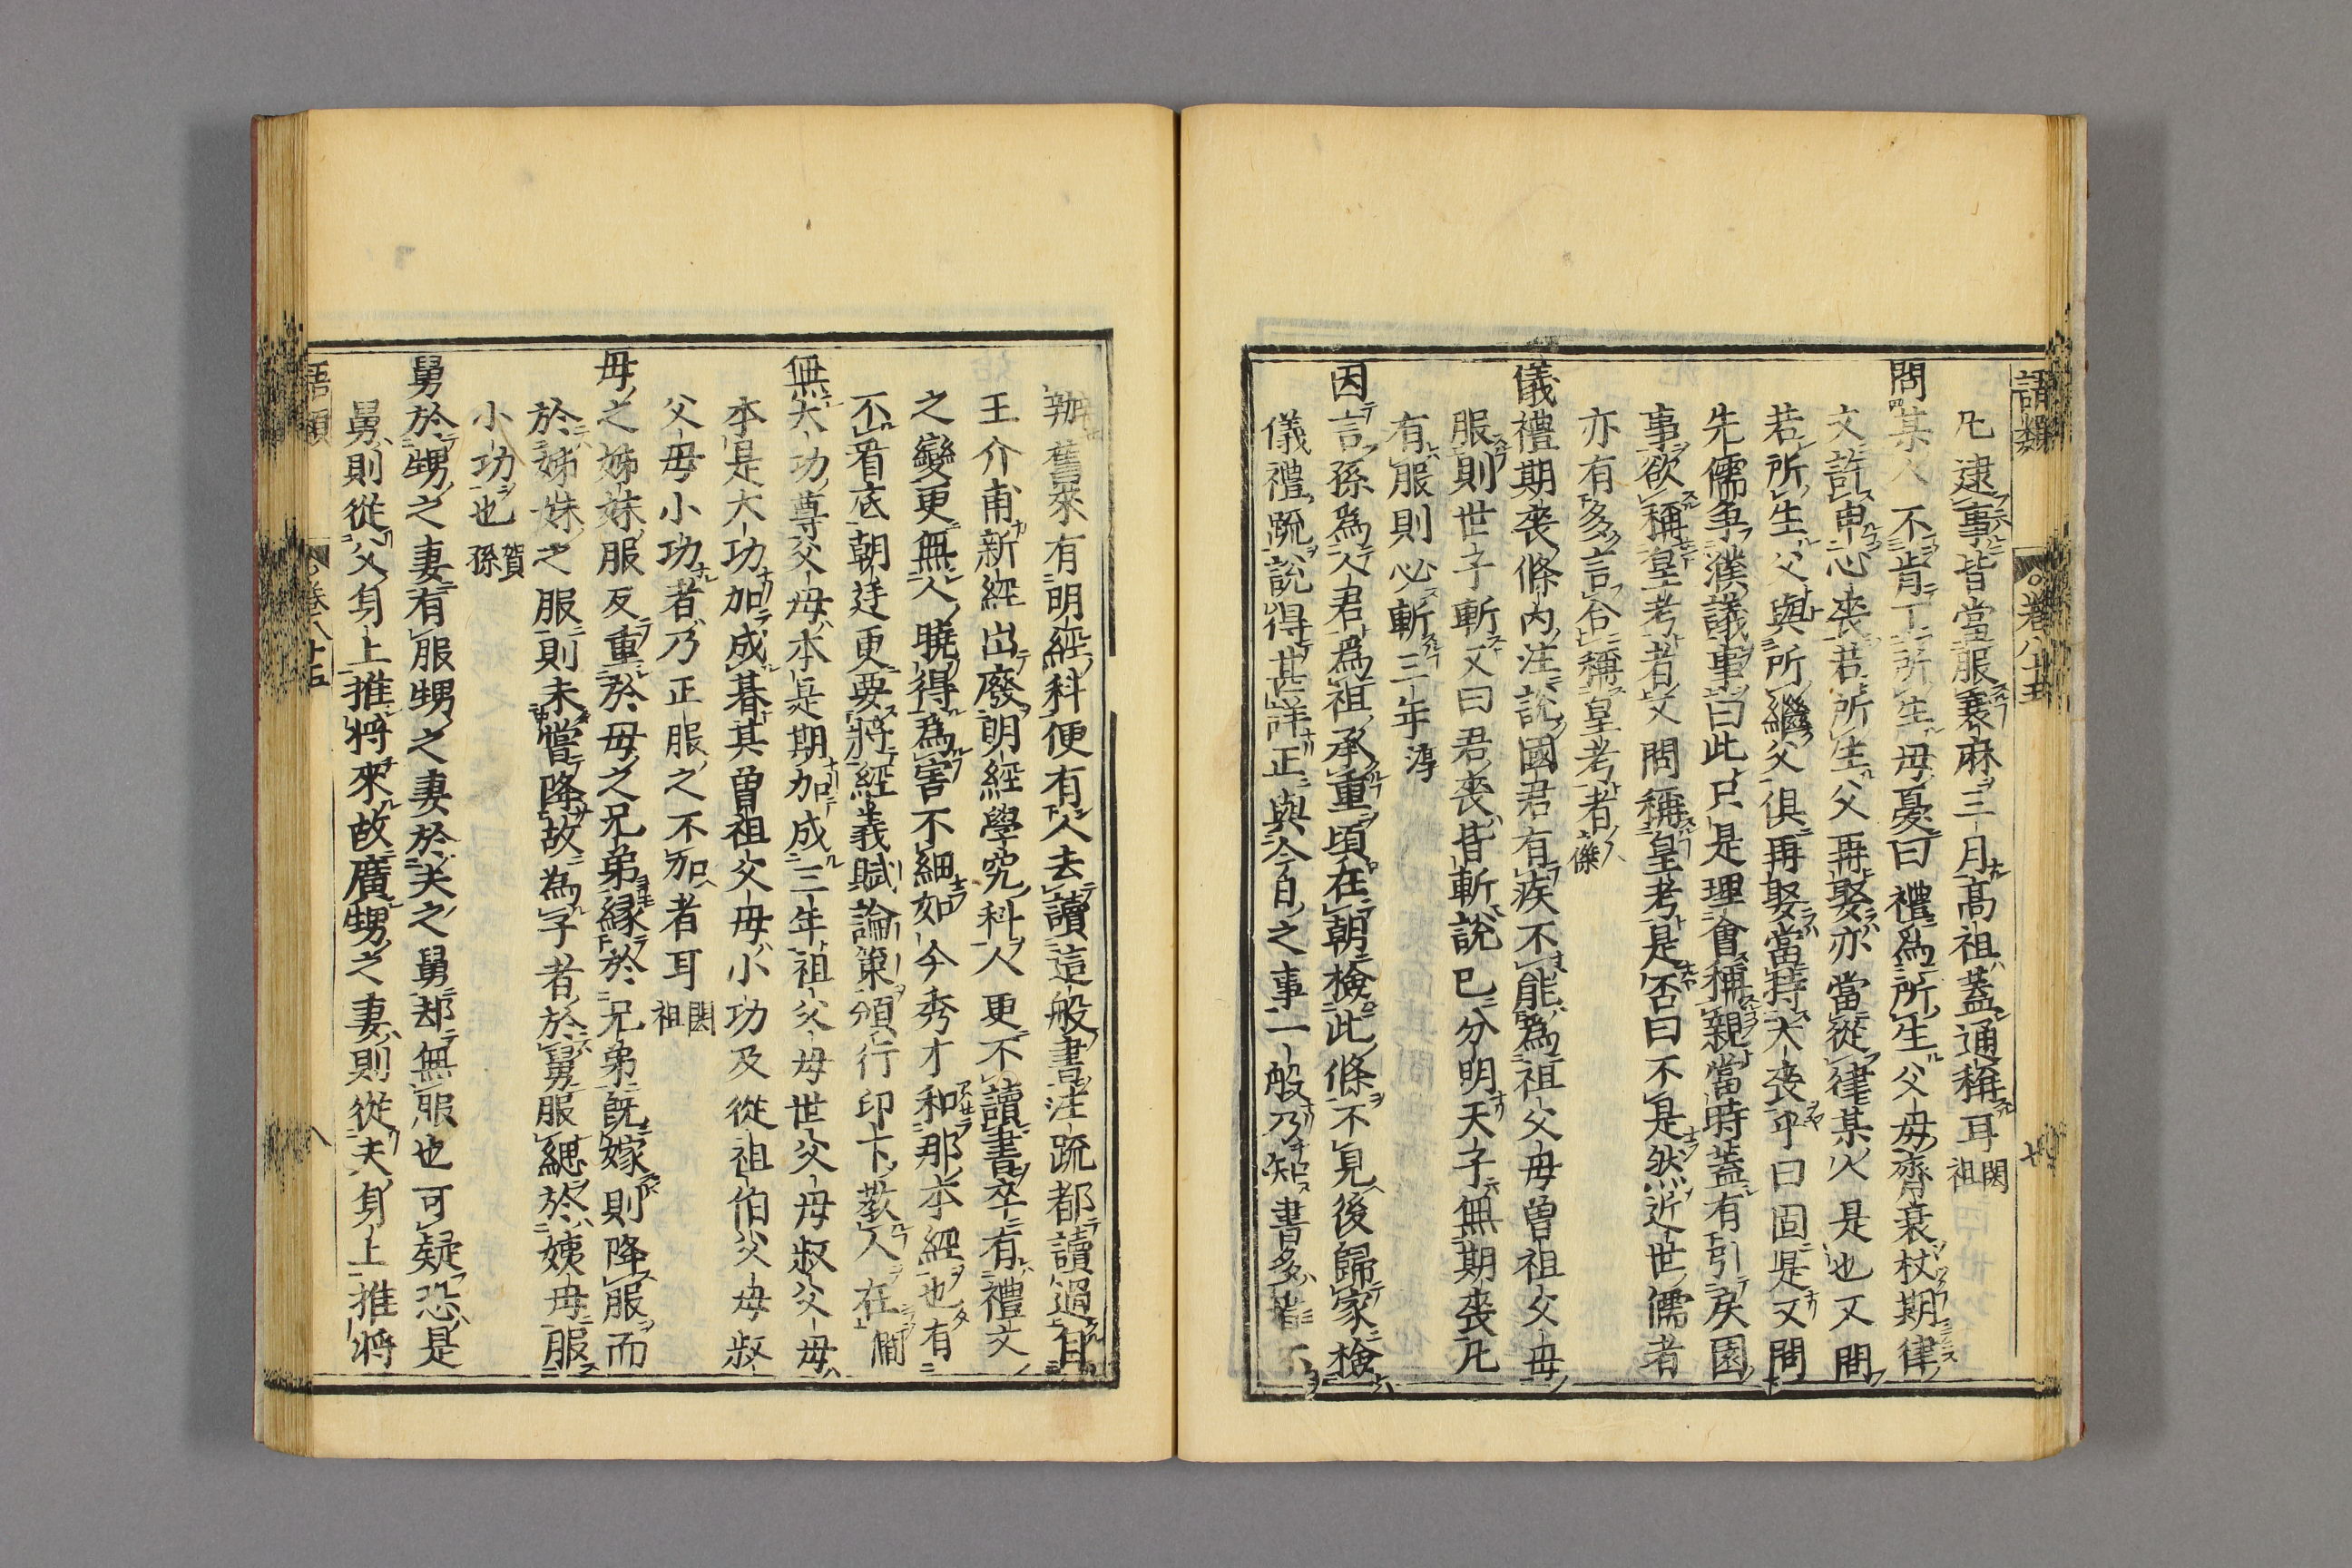 語類 卷八十五 七
凡逮事皆當服衰麻三月高祖蓋通稱耳閎祖
問某人不肯丁所生母憂曰禮爲所生父母齊衰杖期律
文許申心喪若所生父再娶亦當從律某人是也又問
若所生父與所繼父俱再娶當持六喪乎曰固是又問
先儒爭濮議事曰此只是理會稱親當時蓋有引戾園
事欲稱皇考者又問稱皇考是否曰不是然近世儒者
亦有多言合稱皇考者㝢
儀禮期喪條內注說國君有疾不能爲祖父母曾祖父母
服則世子斬又曰君喪皆斬說已分明天子無期喪凡
有服則必斬三年淳
因言孫爲人君爲祖承重頃在朝檢此條不見後歸家檢
儀禮疏說得甚詳正與今日之事一般乃知書多看不
辦舊來有明經科便有人去讀這般書注疏都讀過自
王介甫新經出廢明經學究科人更不讀書卒有禮文
之變更無人曉得爲害不細如今秀才和那本經也有
不看底朝廷更要將經義賦論策頒行印下教人在僩
無大功尊父母本是期加成三年祖父母世父母叔父母
本是大功加成朞其曾祖父母小功及從祖伯父母叔
父母小功者乃正服之不加者耳閎祖
母之姊妹服反重於母之兄弟緣於兄弟既嫁則降服而
於姊妹之服則未嘗降故爲子者於舅服緦於姨母服
小功也賀孫
舅於甥之妻有服甥之妻於夫之舅却無服也可疑恐是
舅則從父身上推將來故廣甥之妻則從夫身上推將
語類 卷八十五 八